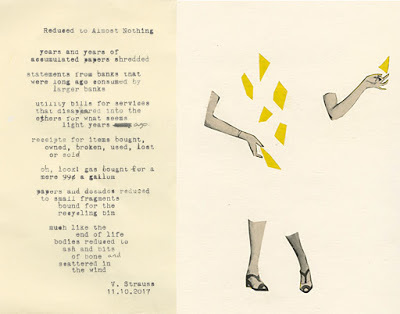 Reduced to Almost Nothing
years and years of
accumulated papers shredded
statements from banks that
were long ago consumed by
larger banks
utility bills for services
that disappeared into the
ethers for what seems
light years ago
receipts for items bought,
owned, broken, used, lost
or sold
oh, look! gas bought for a
mere 99¢ a gallon
papers and decades reduced
to small fragments
bound for the
recycling bin
much like the
end of life
bodies reduced to
ash and bits
of bone and
scattered in
the wind
V. Strauss
11.10.2017